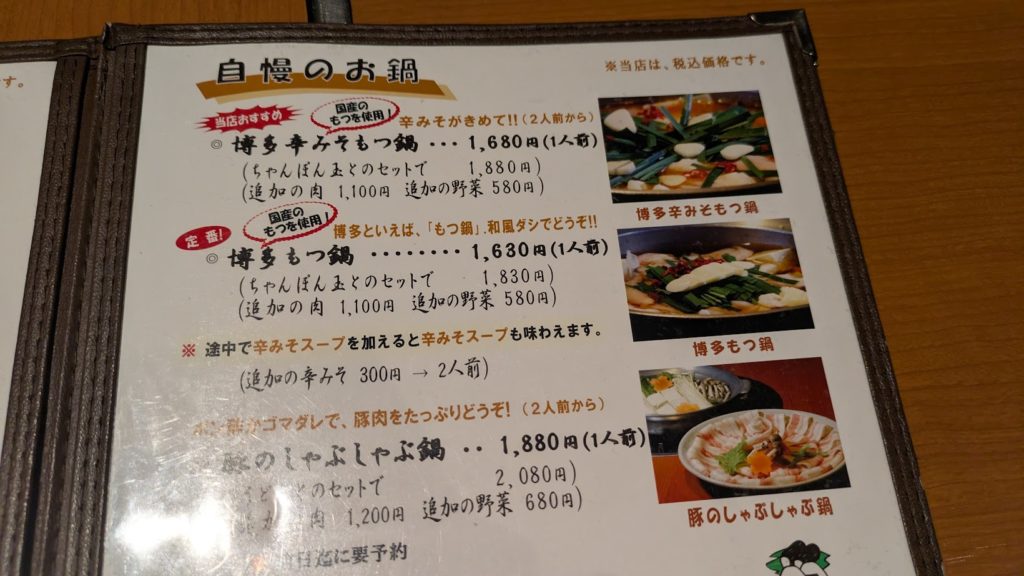 す。
自慢のお鍋
※当店は、税込価格です。
当店おすすめ
国産の
もつを使用!
辛みそがきめて!!(2人前から)
◎ 博多辛みそもつ鍋 ・・・ 1,680円(1人前)
(ちゃんぽん玉とのセットで 1,880円)
(追加の肉 1,100円 追加の野菜 580円)
博多辛みそもつ鍋
定番!
国産の
もつを使用!
博多といえば、「もつ鍋」.和風ダシでどうぞ!!
◎ 博多もつ鍋 ・・・・・・・・ 1,630円(1人前)
(ちゃんぽん玉とのセットで 1,830円)
(追加の肉 1,100円 追加の野菜 580円)
博多もつ鍋
※ 途中で辛みそスープを加えると辛みそスープも味わえます。
(追加の辛みそ 300円 → 2人前)
ゴマダレで、豚肉をたっぷりどうぞ!(2人前から)
豚のしゃぶしゃぶ鍋 ・・ 1,880円(1人前)
とのセットで 2,080円)
肉 1,200円 追加の野菜 680円)
豚のしゃぶしゃぶ鍋
迄に要予約